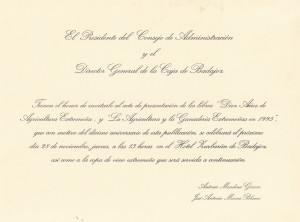 El Presidente del Consejo de Administración
y el
Director General de la Caja de Badajoz
Tienen el honor de invitarle al acto de presentación de los libros "Diez Años de
Agricultura Extremeña", y "La Agricultura y la Ganadería Extremeñas en 1995",
que con motivo del décimo aniversario de esta publicación, se celebrará el próximo
día 23 de noviembre, jueves, a las 13 horas en el Hotel Zurbarán de Badajoz,
así como a la copa de vino extremeño que será servida a continuación.
José Antonio